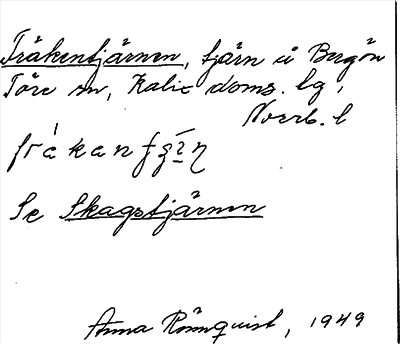 Fräkentjärnen, tjärn å Bergön
Töre sn, Kalix doms. lg,
Norrb. l
Se Skagstjärnen
Anna Rönnquist, 1949